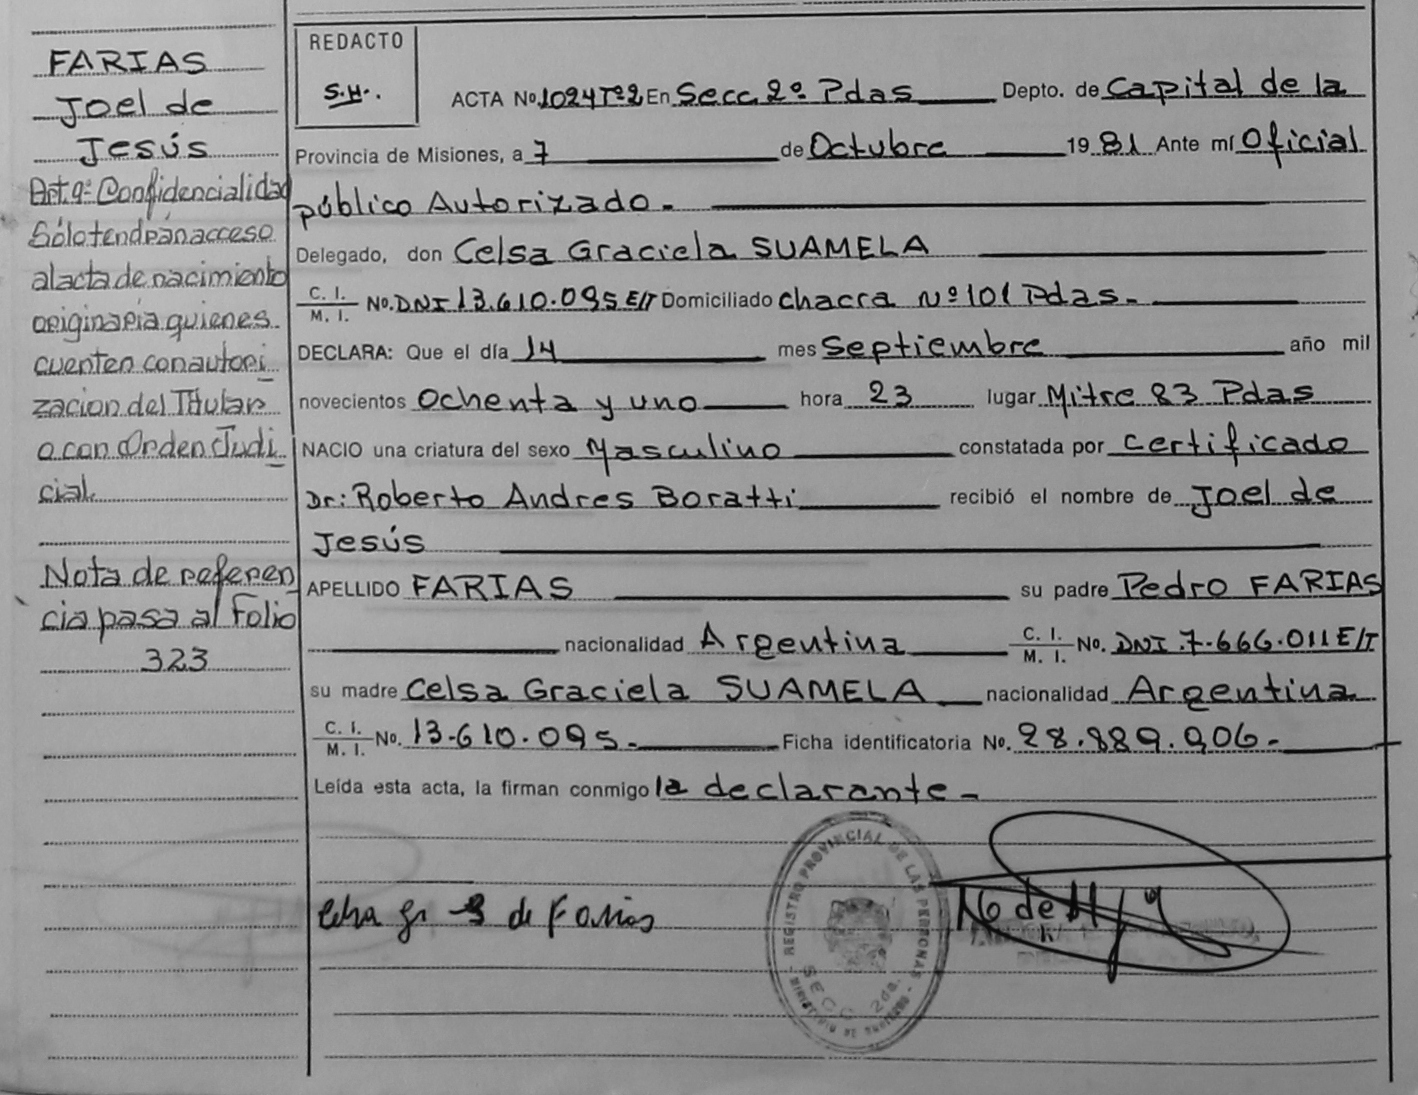 FARIAS
Joel de
Jesús
Art. 9º Confidencialidad
Sólo tendrán acceso
al acta de nacimiento
originaria quienes
cuenten con autori
zacion del Titular
o con Orden Judi
cial.
Nota de referen
cia pasa al Folio
323
REDACTO
S.H.
ACTA No. 1024 Tº2 En Secc. 2º Pdas Depto. de Capital de la
Provincia de Misiones, a 7 de Octubre 19 81 Ante mí Oficial
público Autorizado.
Delegado, don Celsa Graciela SUAMELA
C. I. / M. I. No. DNI 13.610.095 E/T Domiciliado chacra Nº 101 Pdas.
DECLARA: Que el día 14 mes Septiembre año mil
novecientos Ochenta y uno hora 23 lugar Mitre 83 Pdas
NACIO una criatura del sexo Masculino constatada por certificado
Dr: Roberto Andres Boratti recibió el nombre de Joel de
Jesús
APELLIDO FARIAS su padre Pedro FARIAS
nacionalidad Argentina C. I. / M. I. No. DNI. 7.666.011 E/T
su madre Celsa Graciela SUAMELA nacionalidad Argentina
C. I. / M. I. No. 13.610.095.- Ficha identificatoria No. 28.889.906.-
Leída esta acta, la firman conmigo la declarante -
de Farias
REGISTRO PROVINCIAL DE LAS PERSONAS
SECC. 2da.